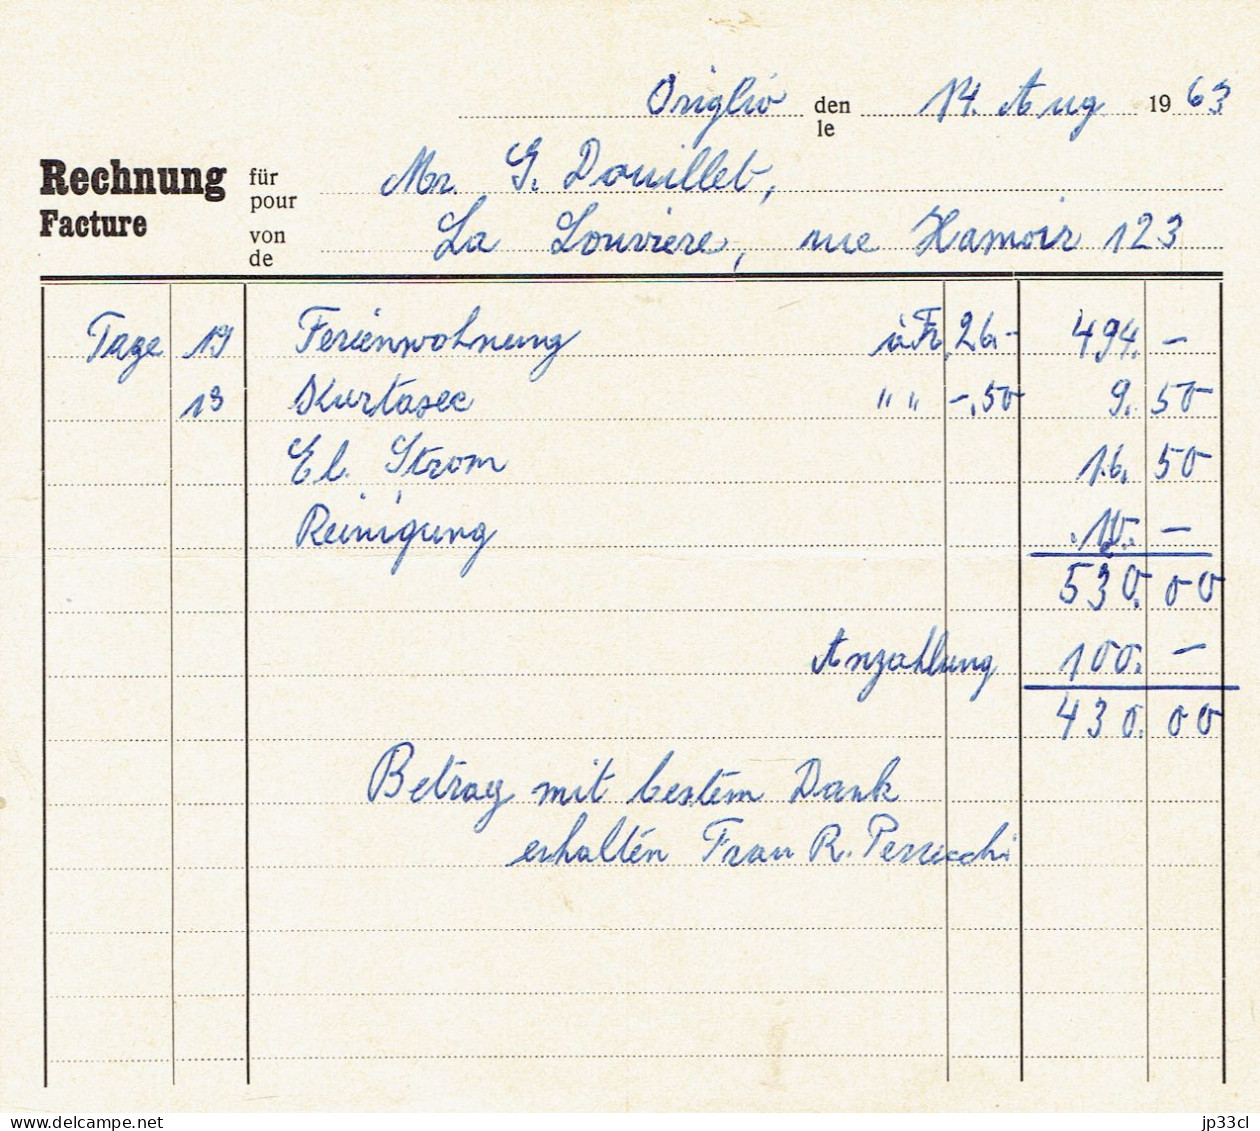 Origlio den 14. Aug 19 63
le
Rechnung für Mr. G. Douillet,
Facture pour
von La Louviere, rue Hamoir 123
de
Tage 19 Ferienwohnung à Fr. 26.- 494. -
19 Kurtaxe " " -.50 9. 50
El. Strom 16. 50
Reinigung 10. -
530. 00
Anzahlung 100. -
430. 00
Betrag mit bestem Dank
erhalten Frau R.
delcampe.net
jp33cl